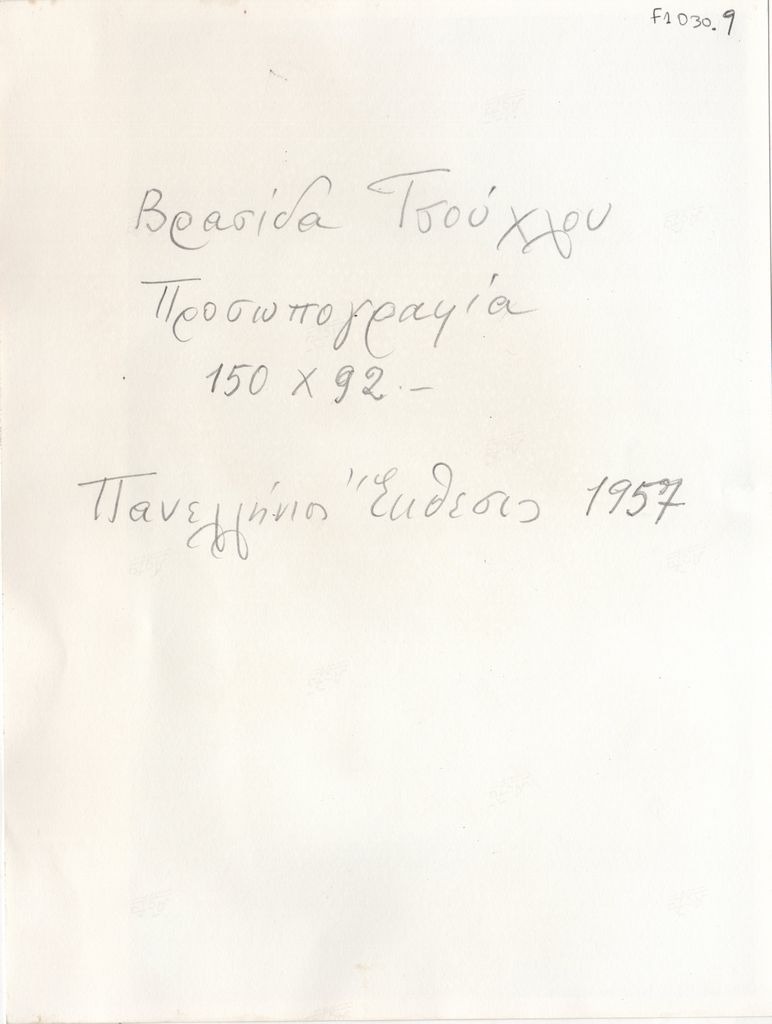 F1D30.9
Βρασίδα Τσούχλου
Προσωπογραφία
150 x 92.–
Πανελλήνιος Ἔκθεσις 1957